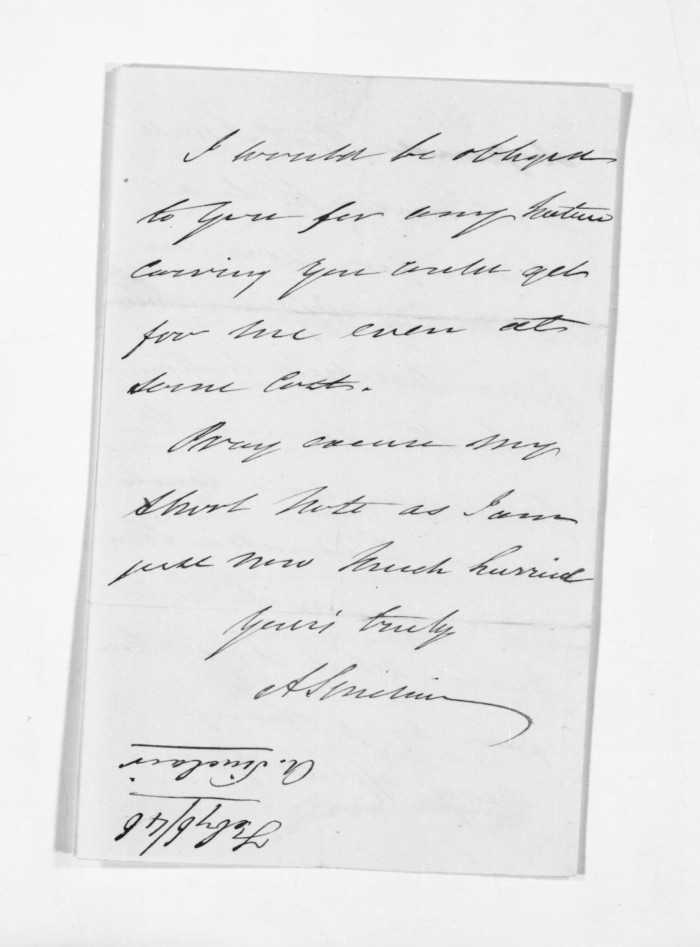 I would be obliged
to you for any native
carving you could get
for me even at
some Cost.
Pray excuse my
short note as I am
just now much hurried
Yours truly
A Sinclair
A. Sinclair
Feby 6/46